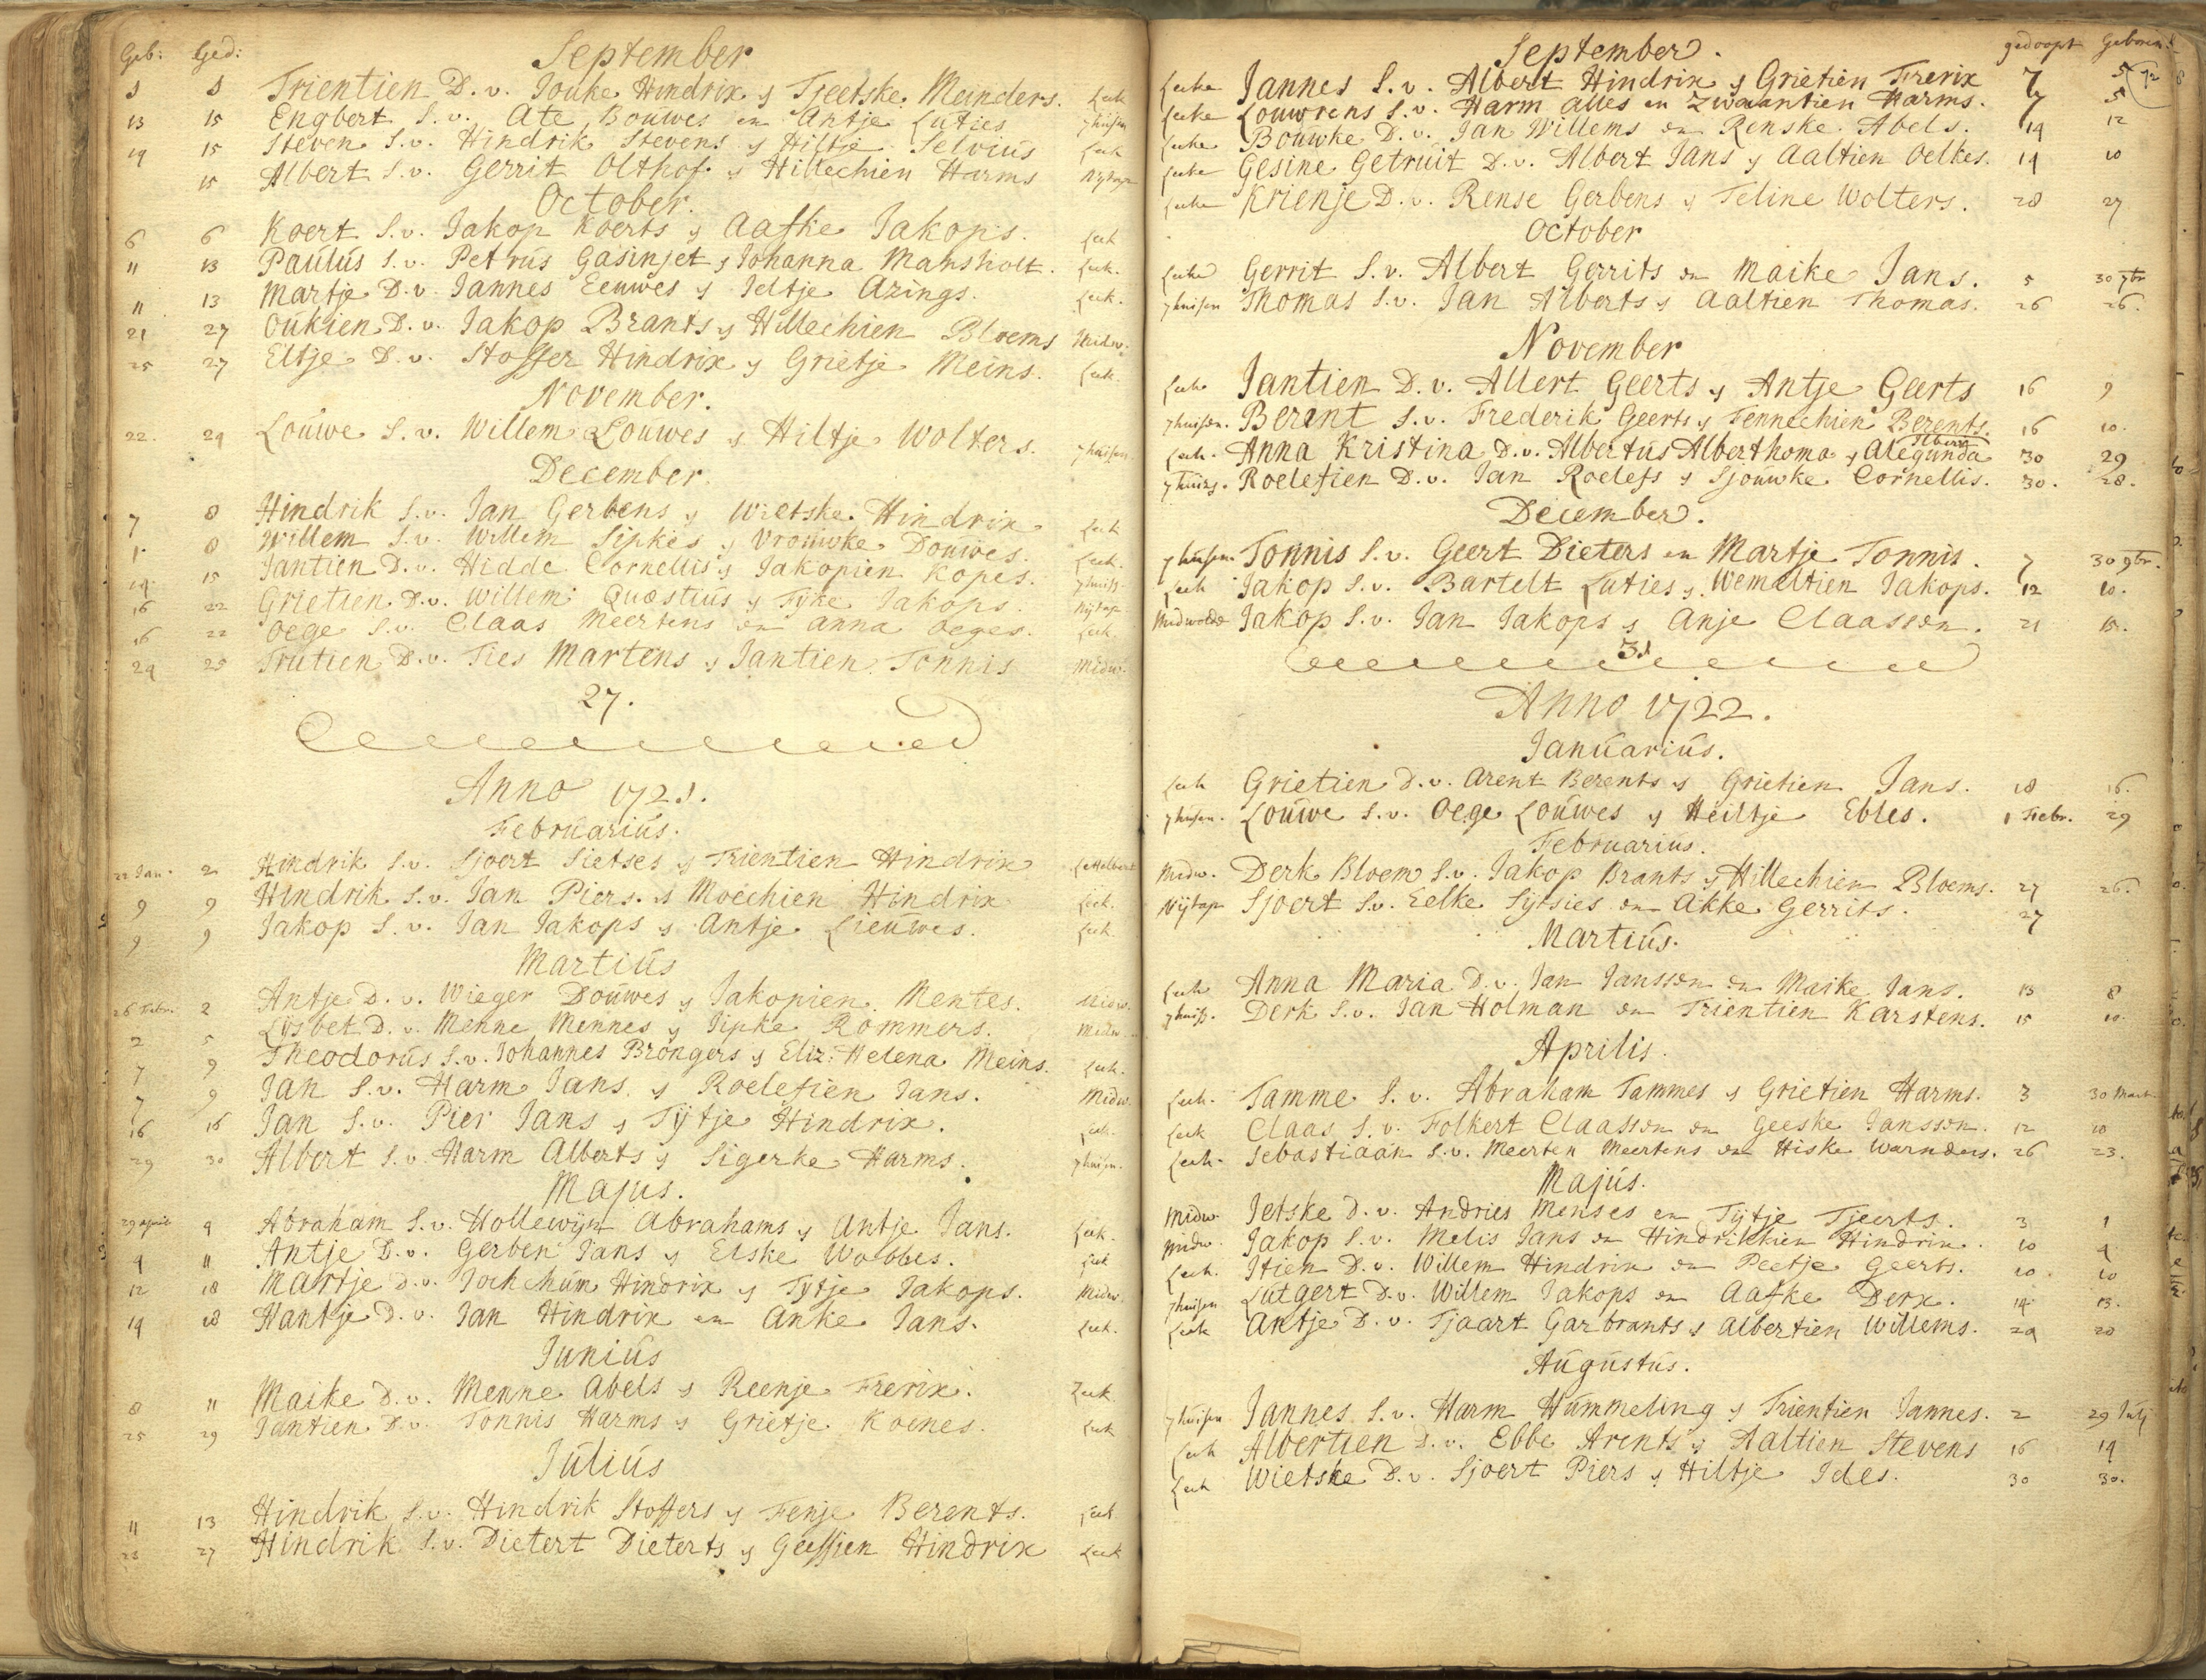 Geb: Ged: September
1 1 Trientien D. v. Jouke Hindrix y Tjeetske Meinders. Leek
13 15 Engbert S. v. Ate Bouwes en Antje Luties 7huisen
14 15 Steven S. v. Hindrik Stevens y Hiltje Selvius Leek
15 Albert S. v. Gerrit Olthof y Hillechien Harms Nytap
October.
6 6 Koert S. v. Jakop Koerts y Aafke Jakops. Leek
11 13 Paulus S. v. Petrus Gasinjet y Johanna Mansholt. Leek.
11 13 Martje D. v. Jannes Eeuwes y Jeltje Azings. Leek.
21 27 Oukien D. v. Jakop Brants y Hillechien Bloems Midw.
25 27 Eltje D. v. Stoffer Hindrix y Grietje Meins. Leek.
November.
22. 24 Louwe S. v. Willem Louwes y Hiltje Wolters. 7huisen
December.
7 8 Hindrik S. v. Jan Gerbens y Wietske Hindrix Leek
1. 8 Willem S. v. Willem Sipkes y Vrouwke Douwes. Leek.
14 15 Jantien D. v. Hidde Cornellis y Jakopien Kopes. 7huis.
16 22 Grietien D. v. Willem Quastius y Tyke Jakops. Nytap
16 22 Oege S. v. Claas Meertens en Anna Oeges. Leek.
24 25 Trutien D. v. Ties Martens y Jantien Tonnis Midw.
27.
Anno 1721.
Februarius.
22 Jan. 2 Hindrik S. v. Sjoert Sietses y Trientien Hindrix Lettelbert
9 9 Hindrik S. v. Jan Piers y Moechien Hindrix Leek.
9 9 Jakop S. v. Jan Jakops y Antje Lieuwes. Leek.
Martius
26 Febr. 2 Antje D. v. Wieger Douwes y Jakopien Mentes. Midw.
2 5 Lysbet D. v. Menne Mennes y Sipke Rommers. Midw.
7 9 Theodorus S. v. Johannes Brongers y Eliz: Helena Meins. Leek.
7 9 Jan S. v. Harm Jans y Roelefien Jans. Midw.
16 16 Jan S. v. Pier Jans y Tytje Hindrix. Leek.
29 30 Albert S. v. Harm Alberts y Sigerke Harms. 7huisen.
Majus.
29 april 4 Abraham S. v. Hollewyn Abrahams y Antje Jans. Leek.
9 11 Antje D. v. Gerben Jans y Elske Wobbes. Leek
12 18 Martje D. v. Jochchum Hindrix y Tytje Jakops. Midw.
14 18 Hantje D. v. Jan Hindrix en Anke Jans. Leek.
Junius
8 11 Maike D. v. Menne Abels y Reenje Frerix. Leek
25 29 Jantien D. v. Tonnis Harms y Grietje Koenes. Leek
Julius
11 13 Hindrik S. v. Hindrik Stoffers y Fenje Berents. Leek
23 27 Hindrik S. v. Dietert Dieterts y Geessien Hindrix Leek
September. gedoopt Geboren
Leeke Jannes S. v. Albert Hindrix y Grietien Frerix 7 5 72
Leeke Louwrens S. v. Harm Alles en Zwaantien Harms. 7 5
Leeke Bouwke D. v. Jan Willems en Renske Abels. 14 12
Leeke Gesine Getruit D. v. Albert Jans y Aaltien Oelkes. 14 10
Leeke Krienje D. v. Rense Gerbens y Teline Wolters. 28 27
October
Leeke Gerrit S. v. Albert Gerrits en Maike Jans. 5 30 7br
7huisen Thomas S. v. Jan Alberts y Aaltien Thomas. 26 26.
November
Leek Jantien D. v. Allert Geerts y Antje Geerts 16 9
7huisen. Berent S. v. Frederik Geerts y Fennechien Berents. 16 10.
Leek. Anna Kristina D. v. Albertus Alberthoma y Alegunda Alberti 30 29
7huizs. Roelefien D. v. Jan Roelefs y Sjouwke Cornellis. 30. 28.
December.
7huisen Tonnis S. v. Geert Dieters en Martje Tonnis. 7 30 9br.
Leek Jakop S. v. Bartelt Luties y Wemeltien Jakops. 12 10.
Midwolde Jakop S. v. Jan Jakops y Anje Claassen. 21 15.
31
Anno 1722.
Januarius.
Leek Grietien D. v. Arent Berents y Grietien Jans. 18 16.
7huisen. Louwe S. v. Oege Louwes y Heiltje Ebles. 1 Febr. 29
Februarius.
Midw. Derk Bloem S. v. Jakop Brants y Hillechien Bloems. 27 26.
Nytap Sjoert S. v. Eelke Sytsies en Akke Gerrits. 27
Martius.
Leek Anna Maria D. v. Jan Janssen en Maike Jans. 13 8
7huis. Derk S. v. Jan Holman en Trientien Karstens. 15 10.
Aprilis.
Leek. Tamme S. v. Abraham Tammes y Grietien Harms. 3 30 Mart.
Leek Claas S. v. Folkert Claassen en Geeske Janssen. 12 10
Leek. Sebastiaan S. v. Meerten Meertens en Hiske Warnders. 26 23.
Majus.
Midw. Jetske D. v. Andries Menses en Tytje Tjeerts. 3 1
Midw. Jakop S. v. Melis Jans en Hindrikkien Hindrix. 10 4
Leek. Itien D. v. Willem Hindrix en Peetje Geerts. 10. 10
7huisen Lutgert D. v. Willem Jakops en Aafke Derx. 14 13.
Leek Antje D. v. Tjaart Garbrants y Albertien Willems. 24 20
Augustus.
7huisen Jannes S. v. Harm Hummeling y Trientien Jannes. 2 29 July
Leek Albertien D. v. Ebbe Arents y Aaltien Stevens 16 14
Leek Wietske D. v. Sjoert Piers y Hiltje Ides. 30 30.